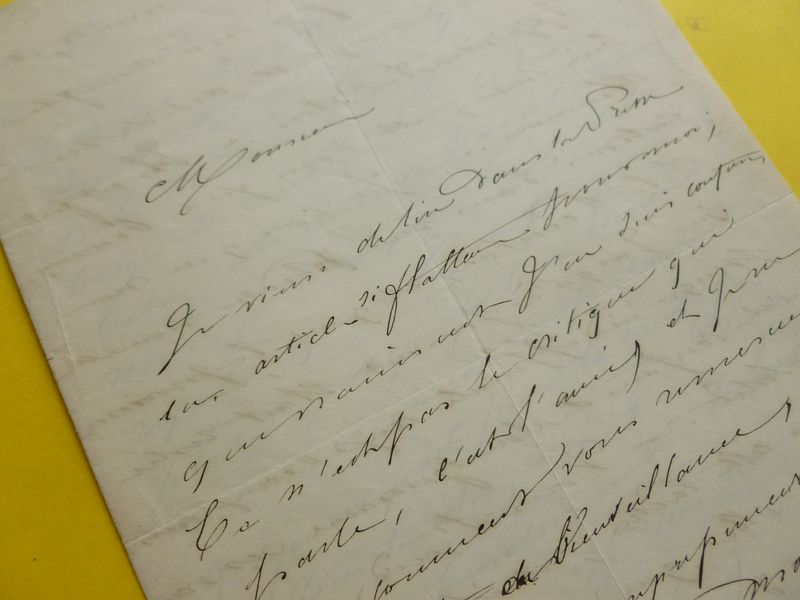 Monsieur
Je viens de lire dans la Presse
un article si flatteur pour moi,
que vraiment j'en suis confus,
Ce n'est pas le critique qui
parle, c'est l'ami, et je ne
comment vous remercier
de Bienveillance,